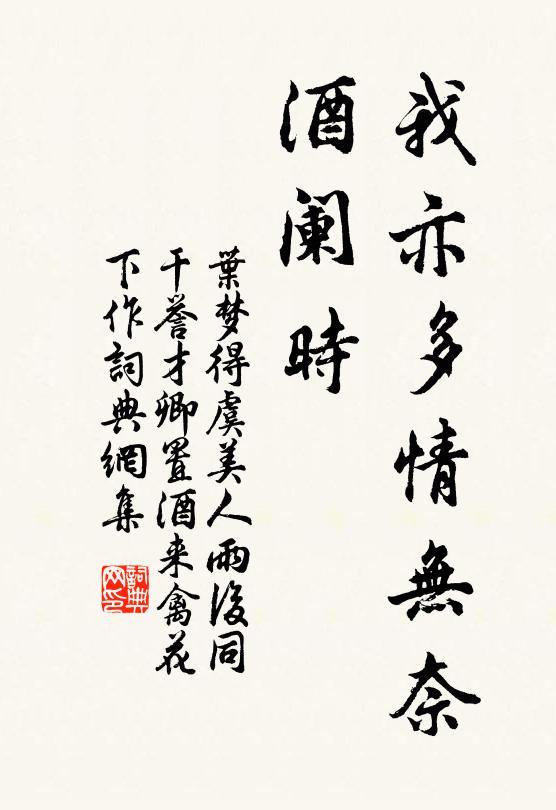 我亦多情無奈
酒阑時
葉梦得虞美人雨後同
干譽才卿置酒来禽花
下作詞典網集
詞典网印